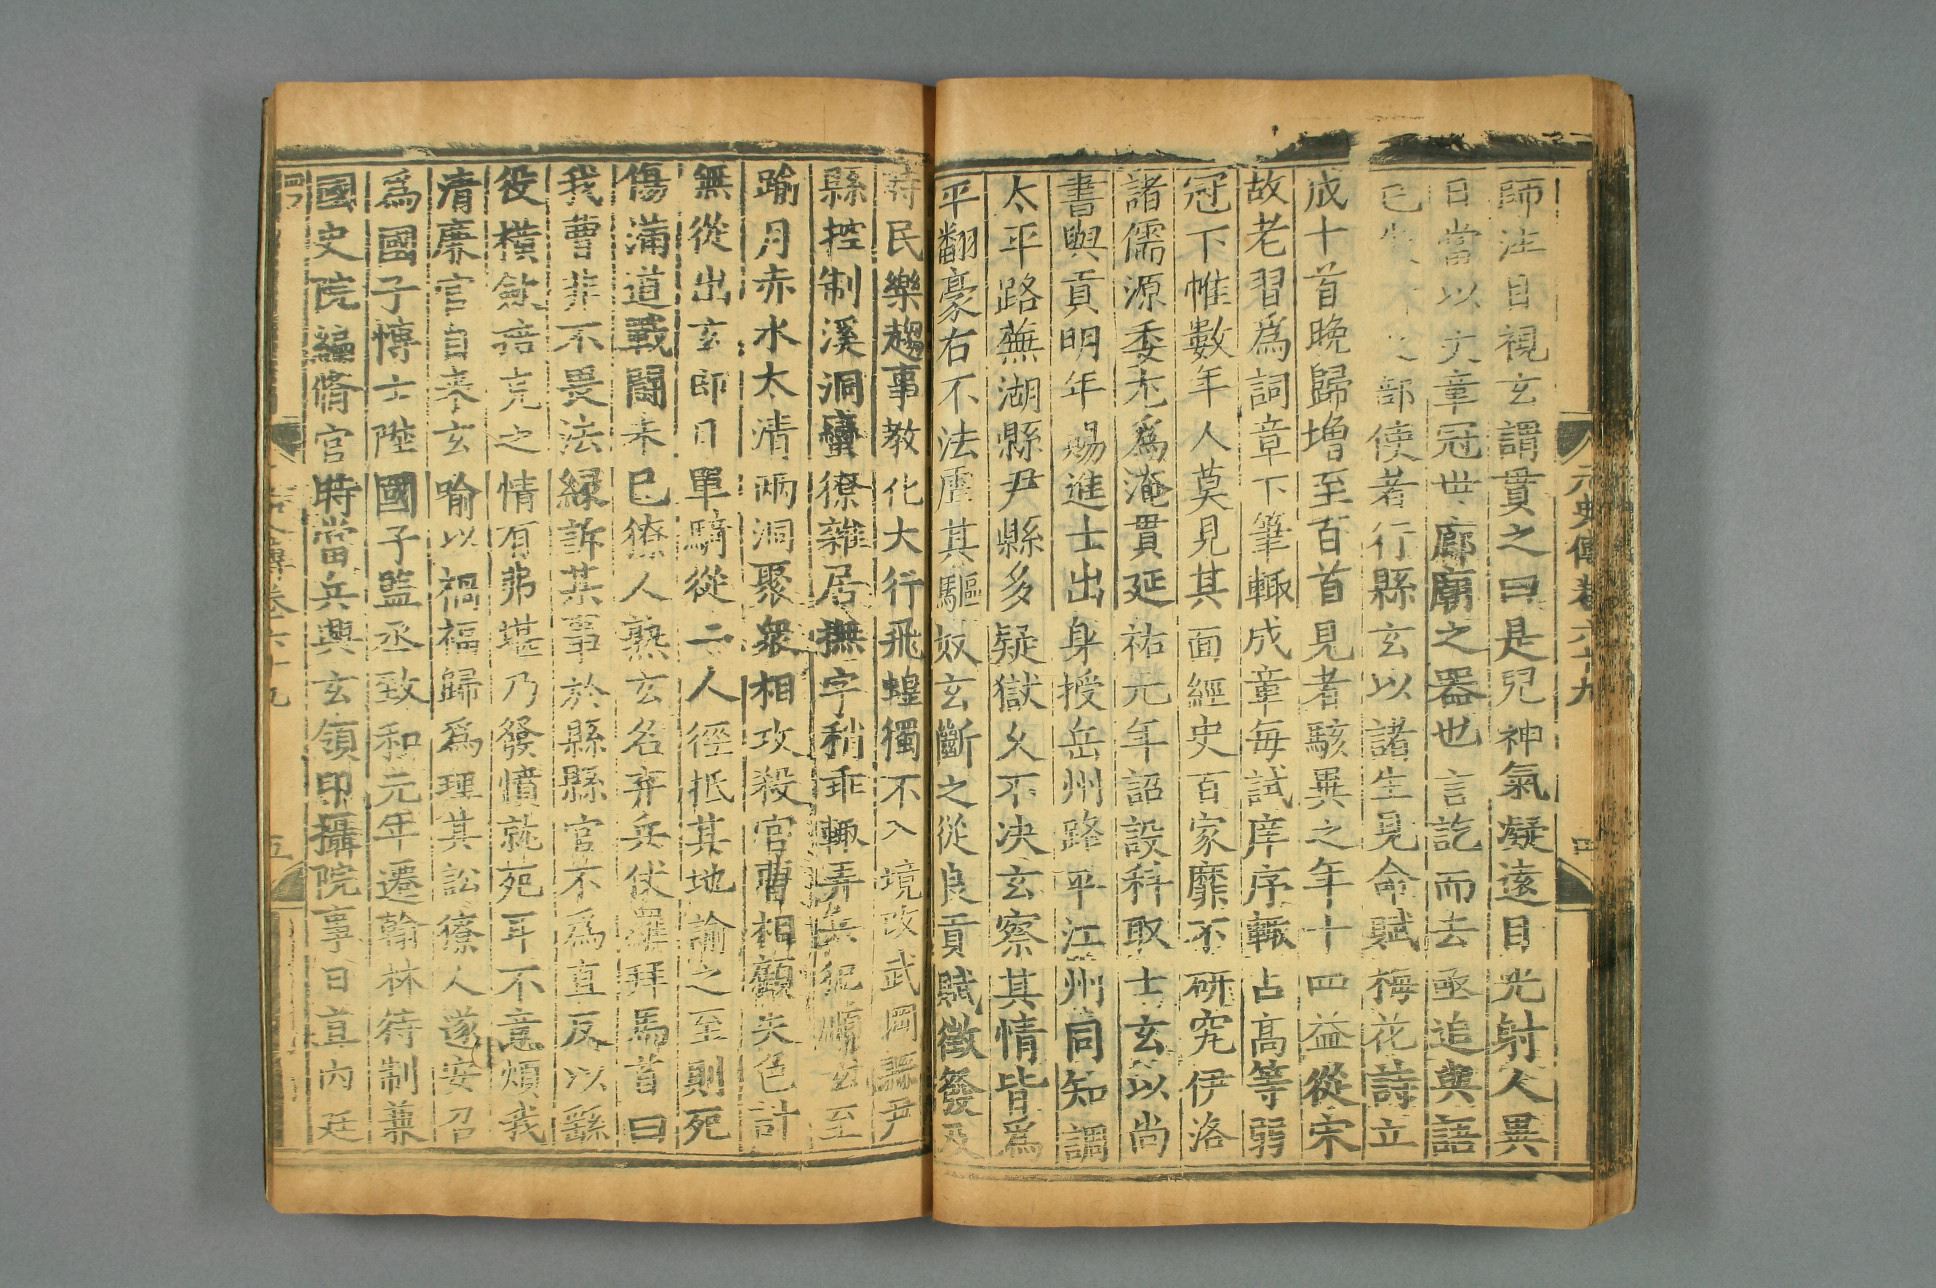 元史傳卷六十九
四
師注目視玄謂貢之曰是兒神氣凝遠目光射人異
日當以文章冠世廊廟之器也言訖而去亟追與語
已失 之部使者行縣玄以諸生見命賦梅花詩立
成十首晚歸增至百首見者駭異之年十四益從宋
故老習為詞章下筆輒成章每試庠序輒占高等弱
冠下帷數年人莫見其面經史百家靡不研究伊洛
諸儒源委尤為淹貫延祐元年詔設科取士玄以尚
書與貢明年賜進士出身授岳州路平江州同知調
太平路蕪湖縣尹縣多疑獄久不决玄察其情皆為
平翻豪右不法虐其驅奴玄斷之從良貢賦徵發及
時民樂趨事教化大行飛蝗獨不入境改武岡縣尹
縣控制溪洞蠻獠雜居撫字稍乖輒弄兵犯順玄至
踰月赤水太清兩洞聚衆相攻殺官曹相顧失色計
無從出玄即日單騎從二人徑抵其地諭之至則死
傷滿道戰鬪未已獠人熟玄名弃兵仗羅拜馬首曰
我曹非不畏法緣訴某事於縣縣官不為直反以繇
役橫歛掊克之情有弗堪乃發憤就死耳不意煩我
清廉官自來玄喻以禍福歸為理其訟獠人遂安召
為國子博士陞國子監丞致和元年遷翰林待制兼
國史院編脩官時當兵興玄領印攝院事日直内廷
傳卷六十九
五